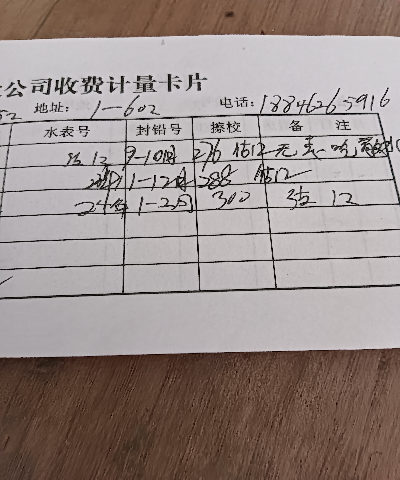 公司收费计量卡片
52 地址: 1-602 电话: 18846265916
水表号 封铅号 擦校 备 注
估12 9-10月 276 估12 无表
1-12月 288 估12
1-2月 300 估 12